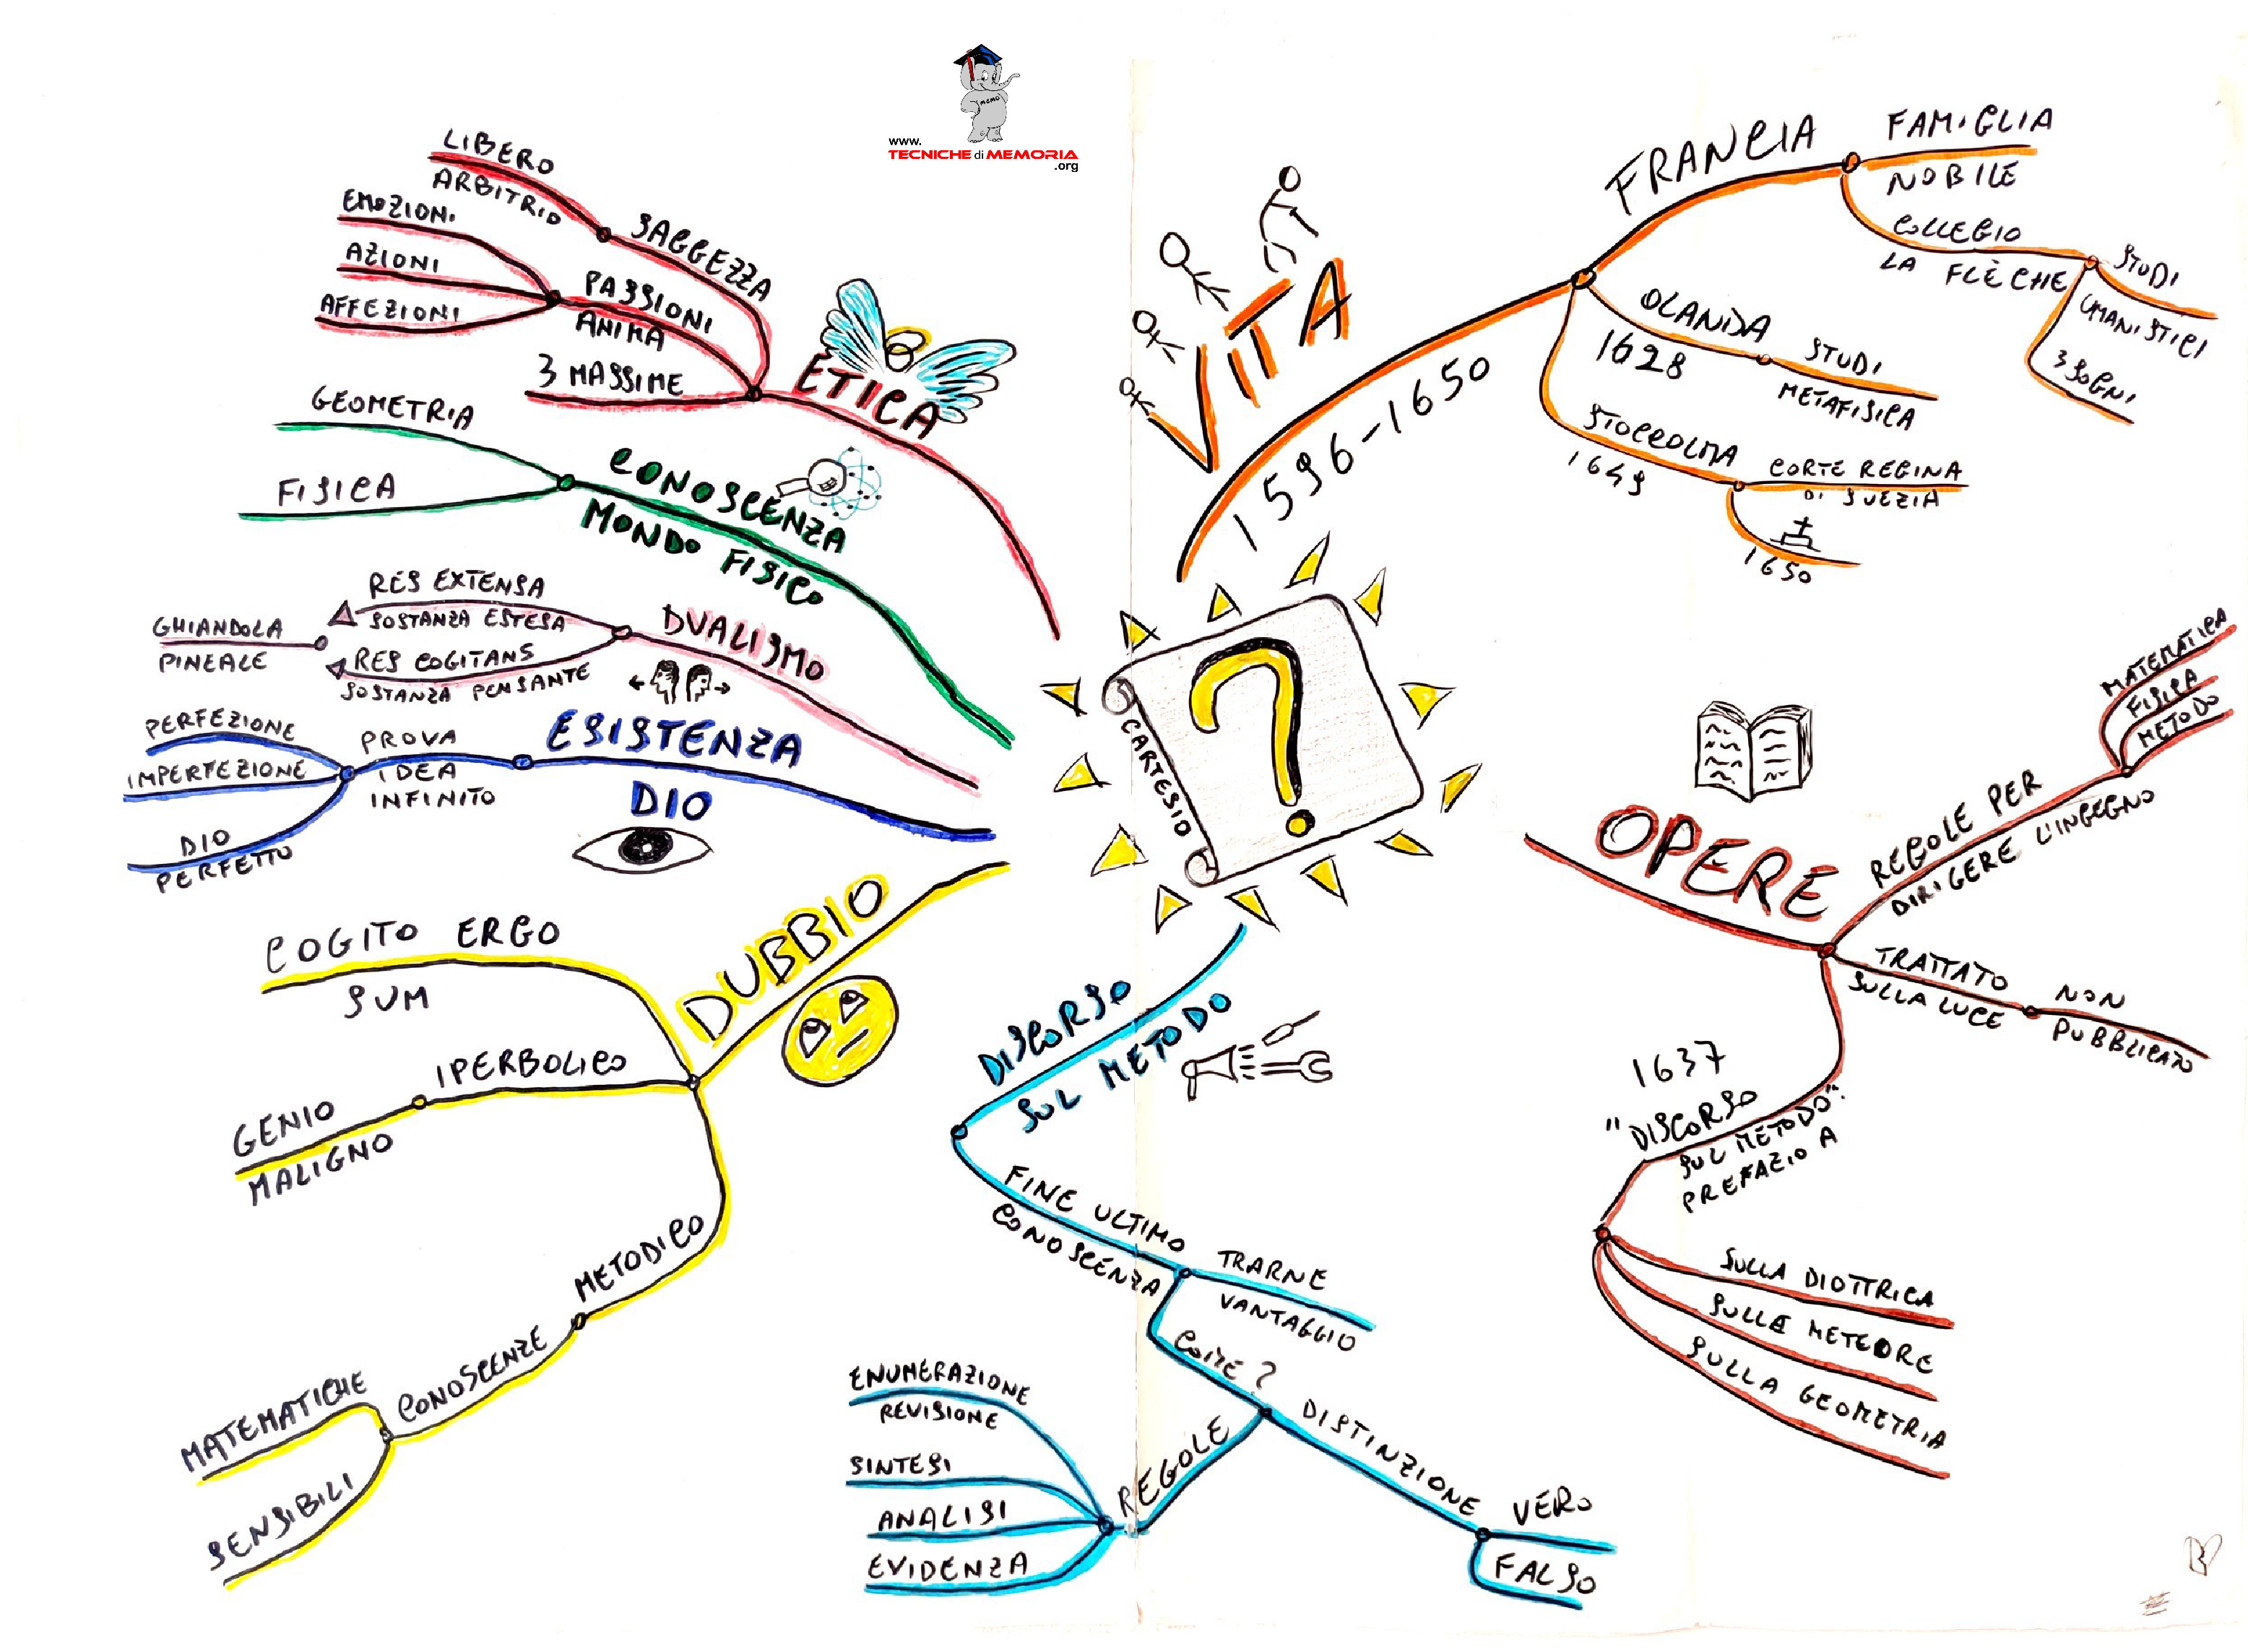 www.
TECNICHE di MEMORIA
.org
MEMO
CARTESIO
?
VITA
1596-1650
FRANCIA
FAMIGLIA
NOBILE
COLLEGIO
LA FLÈCHE
STUDI
UMANISTICI
3 SOGNI
OLANDA
1628
STUDI
METAFISICA
STOCCOLMA
1649
CORTE REGINA
DI SVEZIA
1650
OPERE
REGOLE PER
DIRIGERE L'INGEGNO
MATEMATICA
FISICA
METODO
TRATTATO
SULLA LUCE
NON
PUBBLICATO
1637
"DISCORSO
SUL METODO".
PREFAZIO A
SULLA DIOTTRICA
SULLE METEORE
SULLA GEOMETRIA
DISCORSO
SUL METODO
FINE ULTIMO
CONOSCENZA
TRARNE
VANTAGGIO
COME?
DISTINZIONE
VERO
FALSO
REGOLE
ENUMERAZIONE
REVISIONE
SINTESI
ANALISI
EVIDENZA
DUBBIO
COGITO ERGO
SUM
IPERBOLICO
GENIO
MALIGNO
METODICO
CONOSCENZE
MATEMATICHE
SENSIBILI
ESISTENZA
DIO
PROVA
IDEA
INFINITO
PERFEZIONE
IMPERFEZIONE
DIO
PERFETTO
DUALISMO
RES EXTENSA
SOSTANZA ESTESA
RES COGITANS
SOSTANZA PENSANTE
GHIANDOLA
PINEALE
CONOSCENZA
MONDO FISICO
GEOMETRIA
FISICA
ETICA
SAGGEZZA
LIBERO
ARBITRIO
PASSIONI
ANIMA
EMOZIONI
AZIONI
AFFEZIONI
3 MASSIME